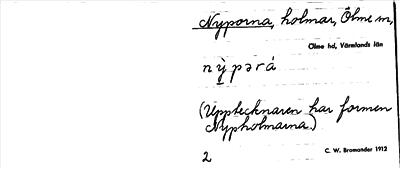 Nyporna, holmar, Ölme sn,
Ölme hd, Värmlands län
nỳpərá
(Upptecknaren har formen
Nypholmarna.)
2
C. W. Bromander 1912